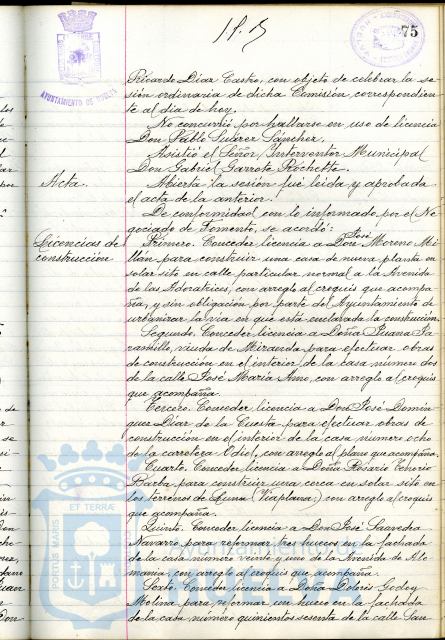 75
AYUNTAMIENTO DE HUELVA
Ricardo Díaz Castro, con objeto de celebrar la se-
sión ordinaria de dicha Comisión correspondien-
te al día de hoy.
No concurrió por hallarse en uso de licencia
Don Pablo Suárez Sánchez.
Asistió el Señor Interventor Municipal
Don Gabriel Garrote Rochette.
Acta.
Abierta la sesión fué leida y aprobada
el acta de la anterior.
De conformidad con lo informado por el Ne-
gociado de Fomento, se acordó:
Licencias de
construcción
Primero. Conceder licencia a Don José Moreno Mi-
llán, para construir una casa de nueva planta en
solar sito en calle particular normal a la Avenida
de las Adoratrices, con arreglo al croquis que acompa-
ña, y sin obligación por parte del Ayuntamiento de
urbanizar la vía en que está enclavada la construcción.
Segundo. Conceder licencia a Doña Juana Ja-
ramillo, viuda de Miranda, para efectuar obras
de construcción en el interior de la casa número dos
de la calle José María Amo, con arreglo al croquis
que acompaña.
Tercero. Conceder licencia a Don José Domín-
guez Díaz de la Cuesta para efectuar obras de
construcción en el interior de la casa número ocho
de la carretera Odiel, con arreglo al plano que acompaña.
Cuarto. Conceder licencia a Doña Rosario Tenorio
Barba, para construir una cerca en solar sito en
los terrenos de con arreglo al croquis
que acompaña.
Quinto. Conceder licencia a Don José Saavedra
Navarro, para reformar tres huecos en la fachada
de la casa número veinte y uno de la Avenida de Ale-
mania, con arreglo al croquis que acompaña.
Sexto. Conceder licencia a Doña Dolores Godoy
Molina, para reformar un hueco en la fachada
de la casa número quinientos sesenta de la calle San
PORTUS MARIS ET TERRÆ